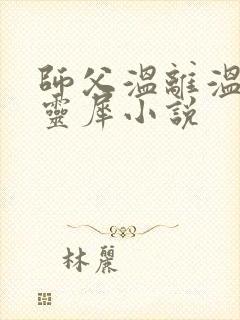 師父溫離溫
靈犀小說
林麗